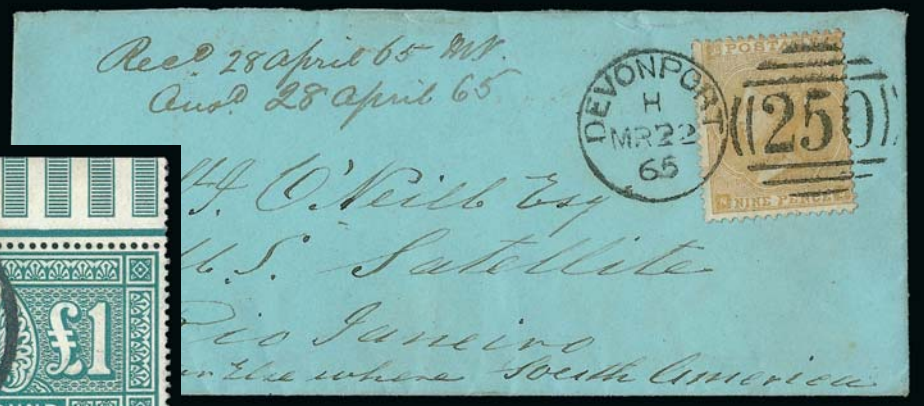 Recd 28 April 65
Ansd 28 April 65
DEVONPORT
H
MR22
65
250
POSTA
NINE PENCE
O'Neill Esq
S. Satellite
Rio Janeiro
or Else where South America
£1